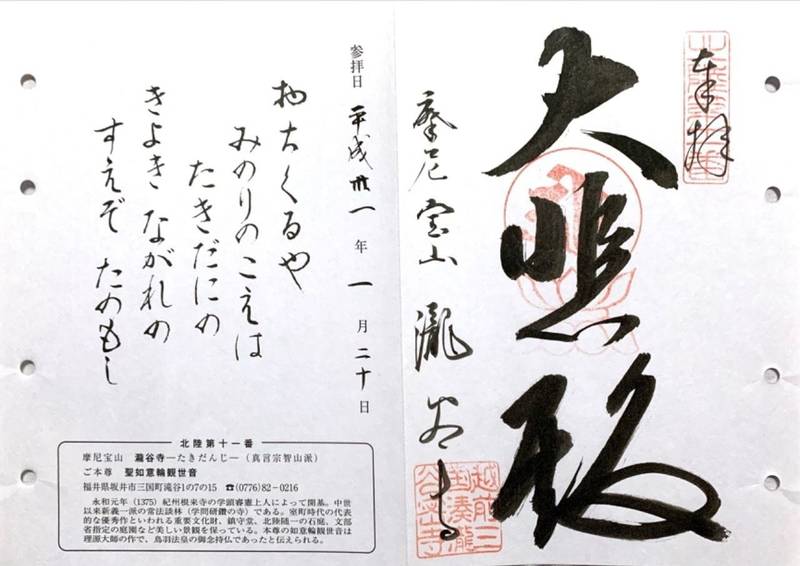 奉拝
大悲殿
摩尼宝山 瀧谷寺
越前三国湊瀧谷寺
参拝日 平成卅一年一月二十日
くるや
みのりのこえは
たきだにの
きよき ながれの
すえぞ たのもし
北陸第十一番
摩尼宝山 瀧谷寺―たきだんじ―(真言宗智山派)
ご本尊 聖如意輪観世音
福井県坂井市三国町滝谷1の7の15 ☎(0776)82-0216
永和元年(1375)紀州根来寺の学頭睿憲上人によって開基。中世
以来新義一派の常法談林(学問研鑽の寺)である。室町時代の代表
的な優秀作といわれる重要文化財、鎮守堂、北陸随一の石庭、文部
省指定の庭園など美しい景観を保っている。本尊の如意輪観世音は
理源大師の作で、鳥羽法皇の御念持仏であったと伝えられる。